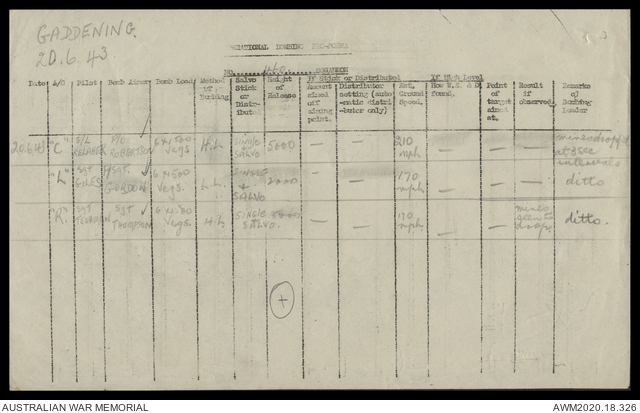 GARDENING.
20.6.43
OPERATIONAL BOMBING PRO-FORMA
NO. 460 SQUADRON
If Stick or Distributed
If High Level
Date A/C Pilot Bomb Aimer Bomb Load Method Of Bombing Salvo Stick or Distributed Height of Release Amount sized off aiming point. Distributor setting (automatic distributor only) Est. Ground Speed. How W.S. & D found. Point of target aimed at. Result if observed Remarks of Bombing Leader
20.6.43 "C" S/L KELAHER P/O ROBERTSON 6 x 1500 Vegs. H.L SINGLE or SALVO 5000 — — 210 mph — — — mines dropped at 8 sec intervals
"L" SGT GILES F/SGT GORDON 6 x 1500 Vegs. SINGLE & SALVO 2000 — — 170 mph — — — ditto
"R" SGT SGT THOMPSON 6 x 1500 Vegs. SINGLE SALVO. — — 170 mph — — mines seen to drop. ditto.
+
AUSTRALIAN WAR MEMORIAL
AWM2020.18.326